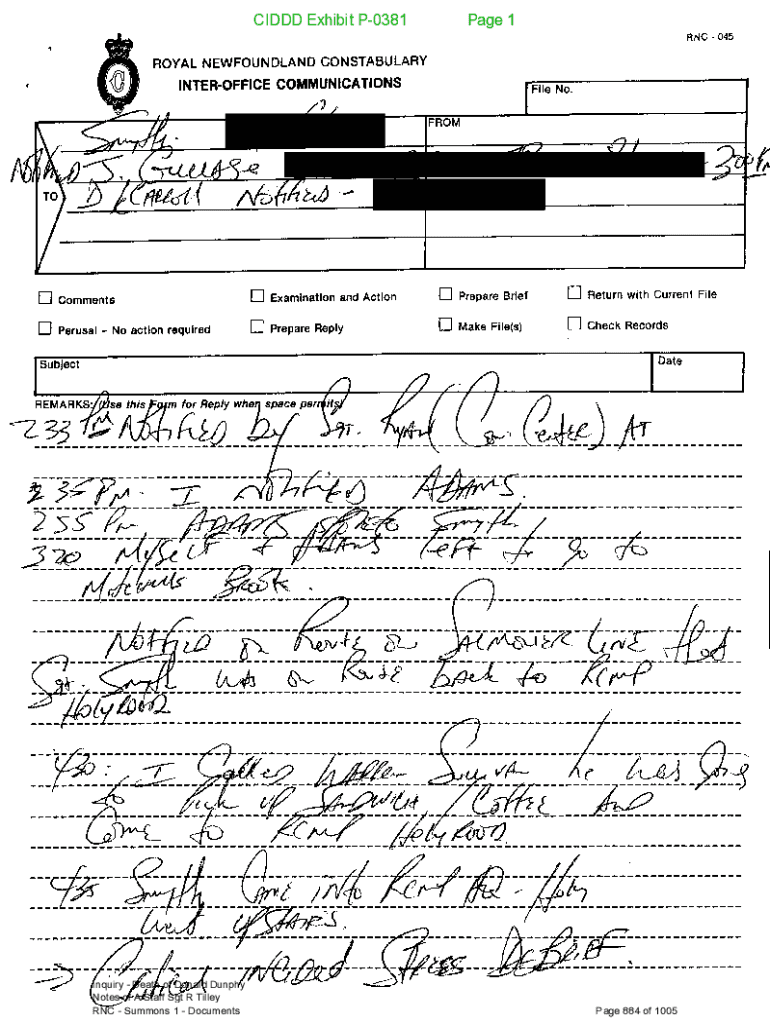 CIDDD Exhibit P-0381 Page 1
RNC - 045
ROYAL NEWFOUNDLAND CONSTABULARY
INTER-OFFICE COMMUNICATIONS
File No.
FROM
Smyth.
Notified J. Gullage - 300 Pm
TO
D/Carroll Notified -
Comments
Examination and Action
Prepare Brief
Return with Current File
Perusal - No action required
Prepare Reply
Make File(s)
Check Records
Subject
Date
REMARKS: (Use this Form for Reply when space permits)
233 PM Notified by Sgt. Ryan (Com. Center) AT
235 PM. I notified ADAMS.
255 Pm ADAMS spoke to Smyth
320 Myself + Adams left to go to
Mitchells Brook.
Notified on Route on Salmonier Line that
Sgt. Smyth was on Route back to RCMP
Holyrood
430: I Called Warren Sullivan he was going
to pick up Sandwich / Coffee And
Come to RCMP Holyrood.
435 Smyth Came into Rcmp HQ - Holy
went upstairs.
→ Critical Incident Stress Debrief.
Inquiry - Death of Donald Dunphy
Notes of A/Staff Sgt R Tilley
RNC - Summons 1 - Documents
Page 884 of 1005